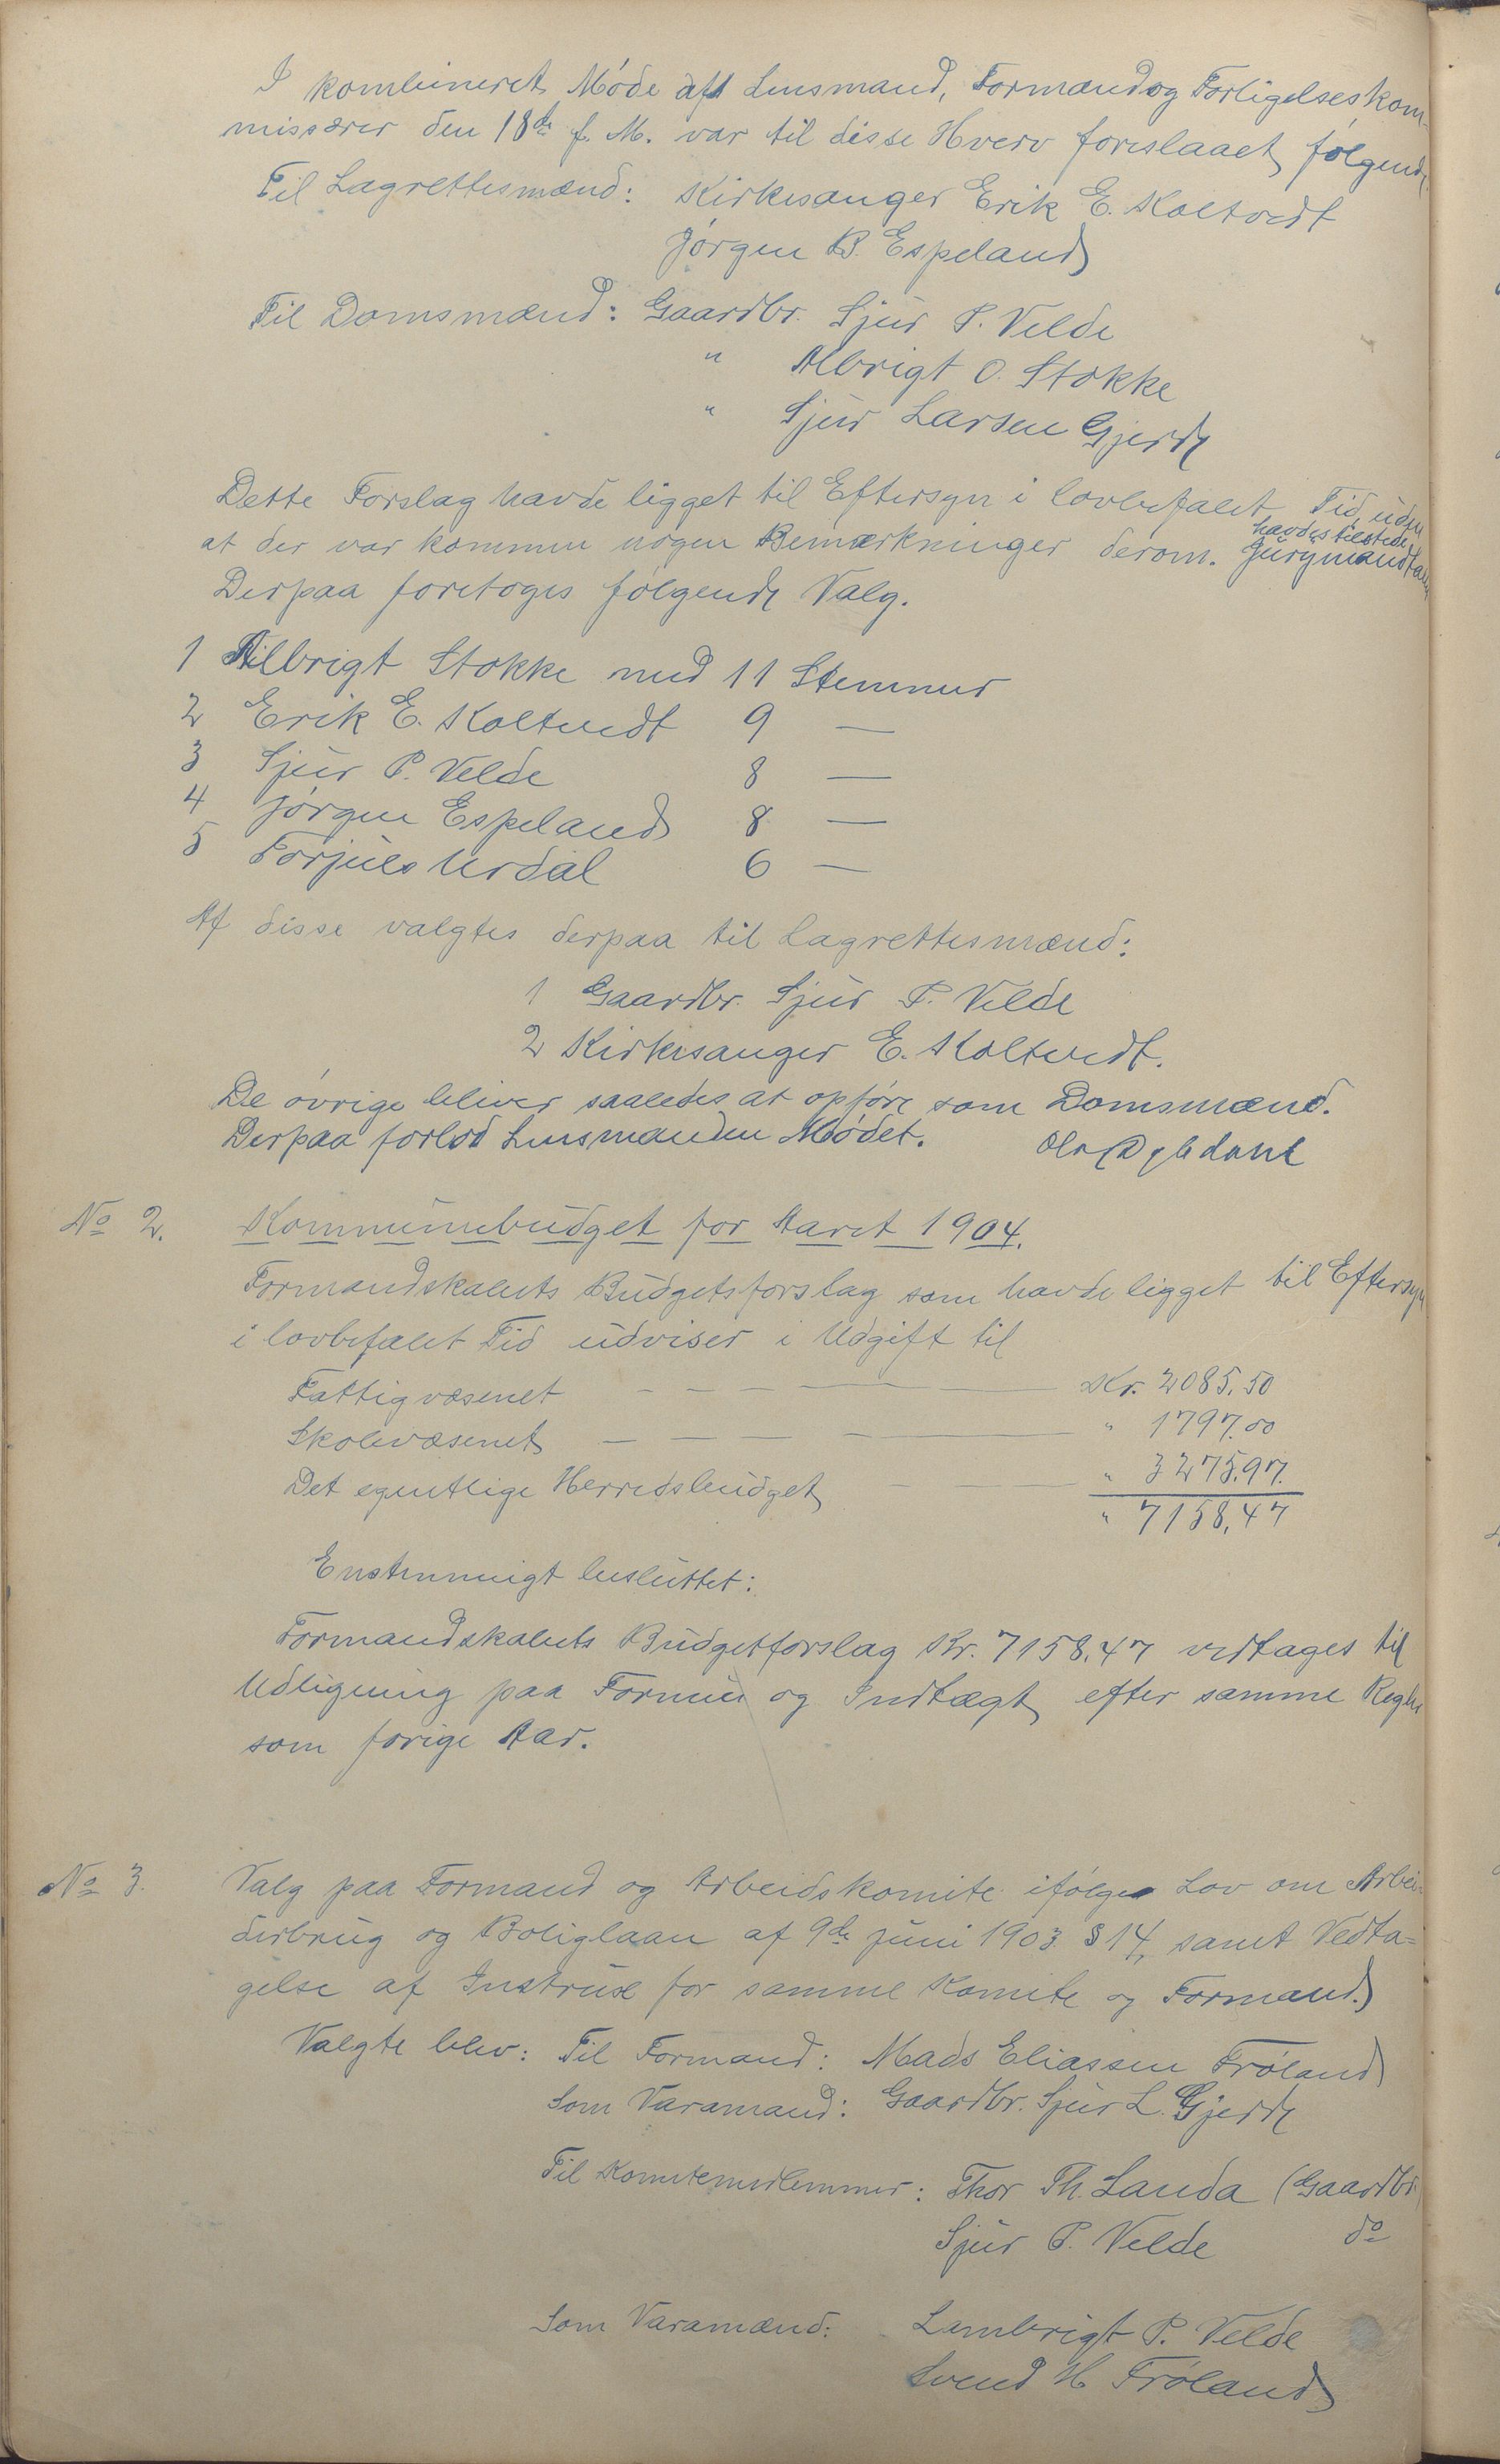 I kombineret Møde af Lensmand, Formand og Forligelseskom-
missærer den 18de f. M. var til disse Hverv foreslaaet følgende
Til Lagrettesmænd: Kirkesanger Erik E. Koltvedt
Jørgen B. Espeland
Til Domsmænd: Gaardbr. Sjur P. Velde
" Albrigt O. Stokke
" Sjur Larsen Gjerde
Dette Forslag havde ligget til Eftersyn i lovbefalet Tid uden
at der var kommen nogen Bemærkninger derom. Jurymandtallet
havdes tilstede
Derpaa foretoges følgende Valg.
1 Albrigt Stokke med 11 Stemmer
2 Erik E. Koltvedt 9 —
3 Sjur P. Velde 8 —
4 Jørgen Espeland 8 —
5 Torjuls Urdal 6 —
Af disse valgtes derpaa til Lagrettesmænd:
1 Gaardbr. Sjur P. Velde
2 Kirkesanger E. Koltvedt.
De øvrige bliver saaledes at opføre som Domsmænd.
Derpaa forlod Lensmanden Mødet.
No 2. Kommunebudget for Aaret 1904.
Formandskabets Budgetsforslag som havde ligget til Eftersyn
i lovbefalet Tid udviser i Udgift til
Fattigvæsenet — — — — Kr. 2085,50
Skolevæsenet — — — — " 1797.00
Det egentlige Herredsbudget — — " 3275.97.
" 7158,47
Enstemmigt besluttet:
Formandskabets Budgetforslag Kr. 7158,47 vedtages til
Udligning paa Formue og Indtægt efter samme Regler
som forige Aar.
No 3. Valg paa Formand og Arbeidskomite ifølge Lov om Arbei-
derbrug og Boliglaan af 9de juni 1903 § 14, samt Vedta=
gelse af Instrux for samme Komite og Formand.
Valgte blev: Til Formand: Mads Eliassen Frøland
Som Varamand: Gaardbr. Sjur L. Gjerde
Til Komitemedlemmer: Thor Th. Landa (Gaardbr)
Sjur P. Velde do
Som Varamænd: Lambrigt P. Velde
Svend H Frøland